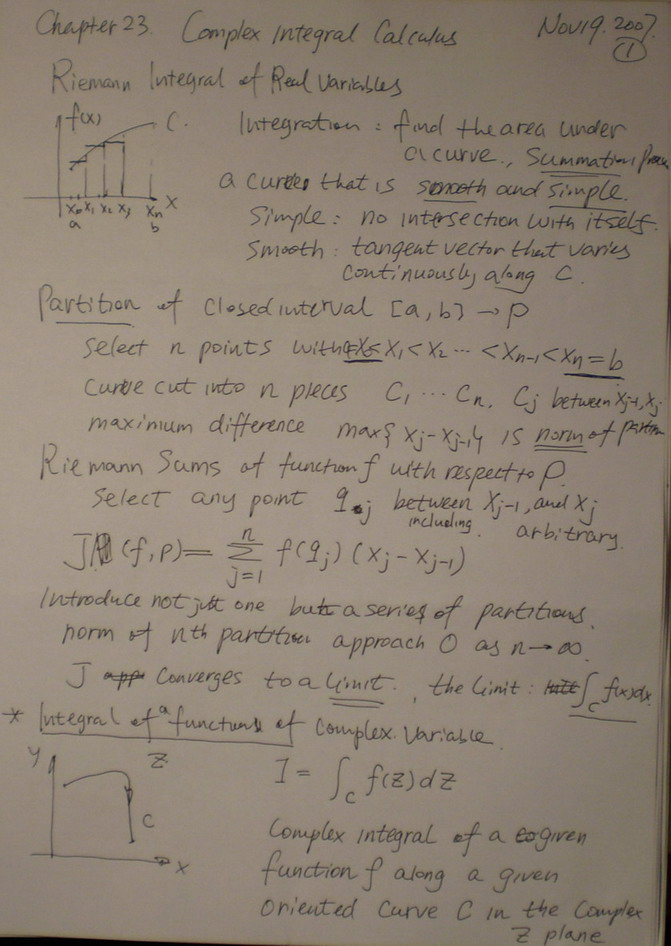 Chapter 23. Complex Integral Calculus Nov 19. 2007.
1
Riemann Integral of Real Variables
f(x) C.
x₀ x₁ x₂ x₃ xₙ x
a b
Integration : find the area under
a curve., Summation
a curve that is smooth and simple.
Simple : no intersection with itself.
Smooth : tangent vector that varies
continuously along C.
Partition of closed interval [a, b] → P
Select n points with x₁ < x₂ ... < xₙ₋₁ < xₙ = b
Curve cut into n pieces C₁ ... Cₙ. Cⱼ between xⱼ₋₁, xⱼ
maximum difference max{ xⱼ - xⱼ₋₁} is norm of partition
Riemann Sums of function f with respect to P.
Select any point qⱼ between xⱼ₋₁, and xⱼ
including. arbitrary.
J (f, P) = Σ f(qⱼ) (xⱼ - xⱼ₋₁)
n
j=1
Introduce not just one but a series of partitions.
norm of nth partition approach 0 as n → ∞.
J converges to a limit. , the limit : ∫_C f(x)dx
* Integral of a function of Complex Variable.
Y Z
C
X
I = ∫_C f(z) dz
Complex integral of a given
function f along a given
oriented curve C in the complex
Z plane